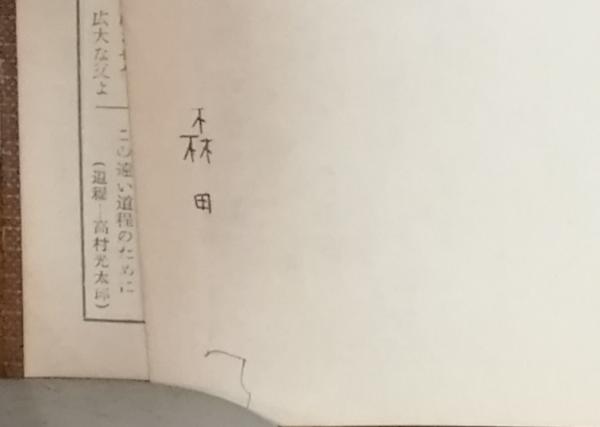 森田
この遠い道程のために
広大な父よ
(道程—高村光太郎)